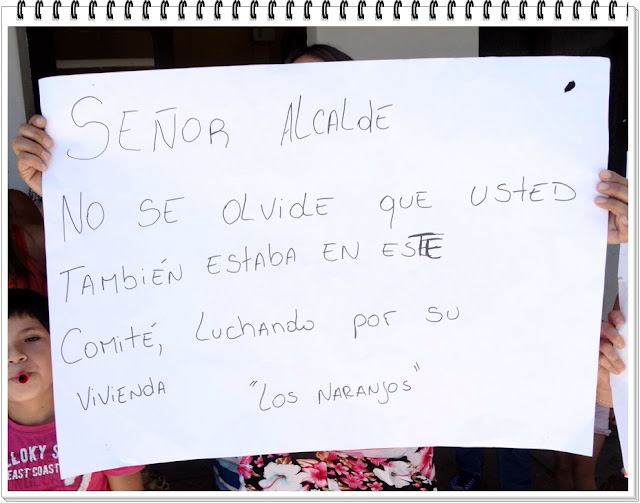 SEÑOR ALCALDE
NO SE OLVIDE QUE USTED
TAMBIÉN ESTABA EN ESTE
COMITÉ, LUCHANDO POR SU
VIVIENDA "LOS NARANJOS"
LLOKY S
EAST COAST